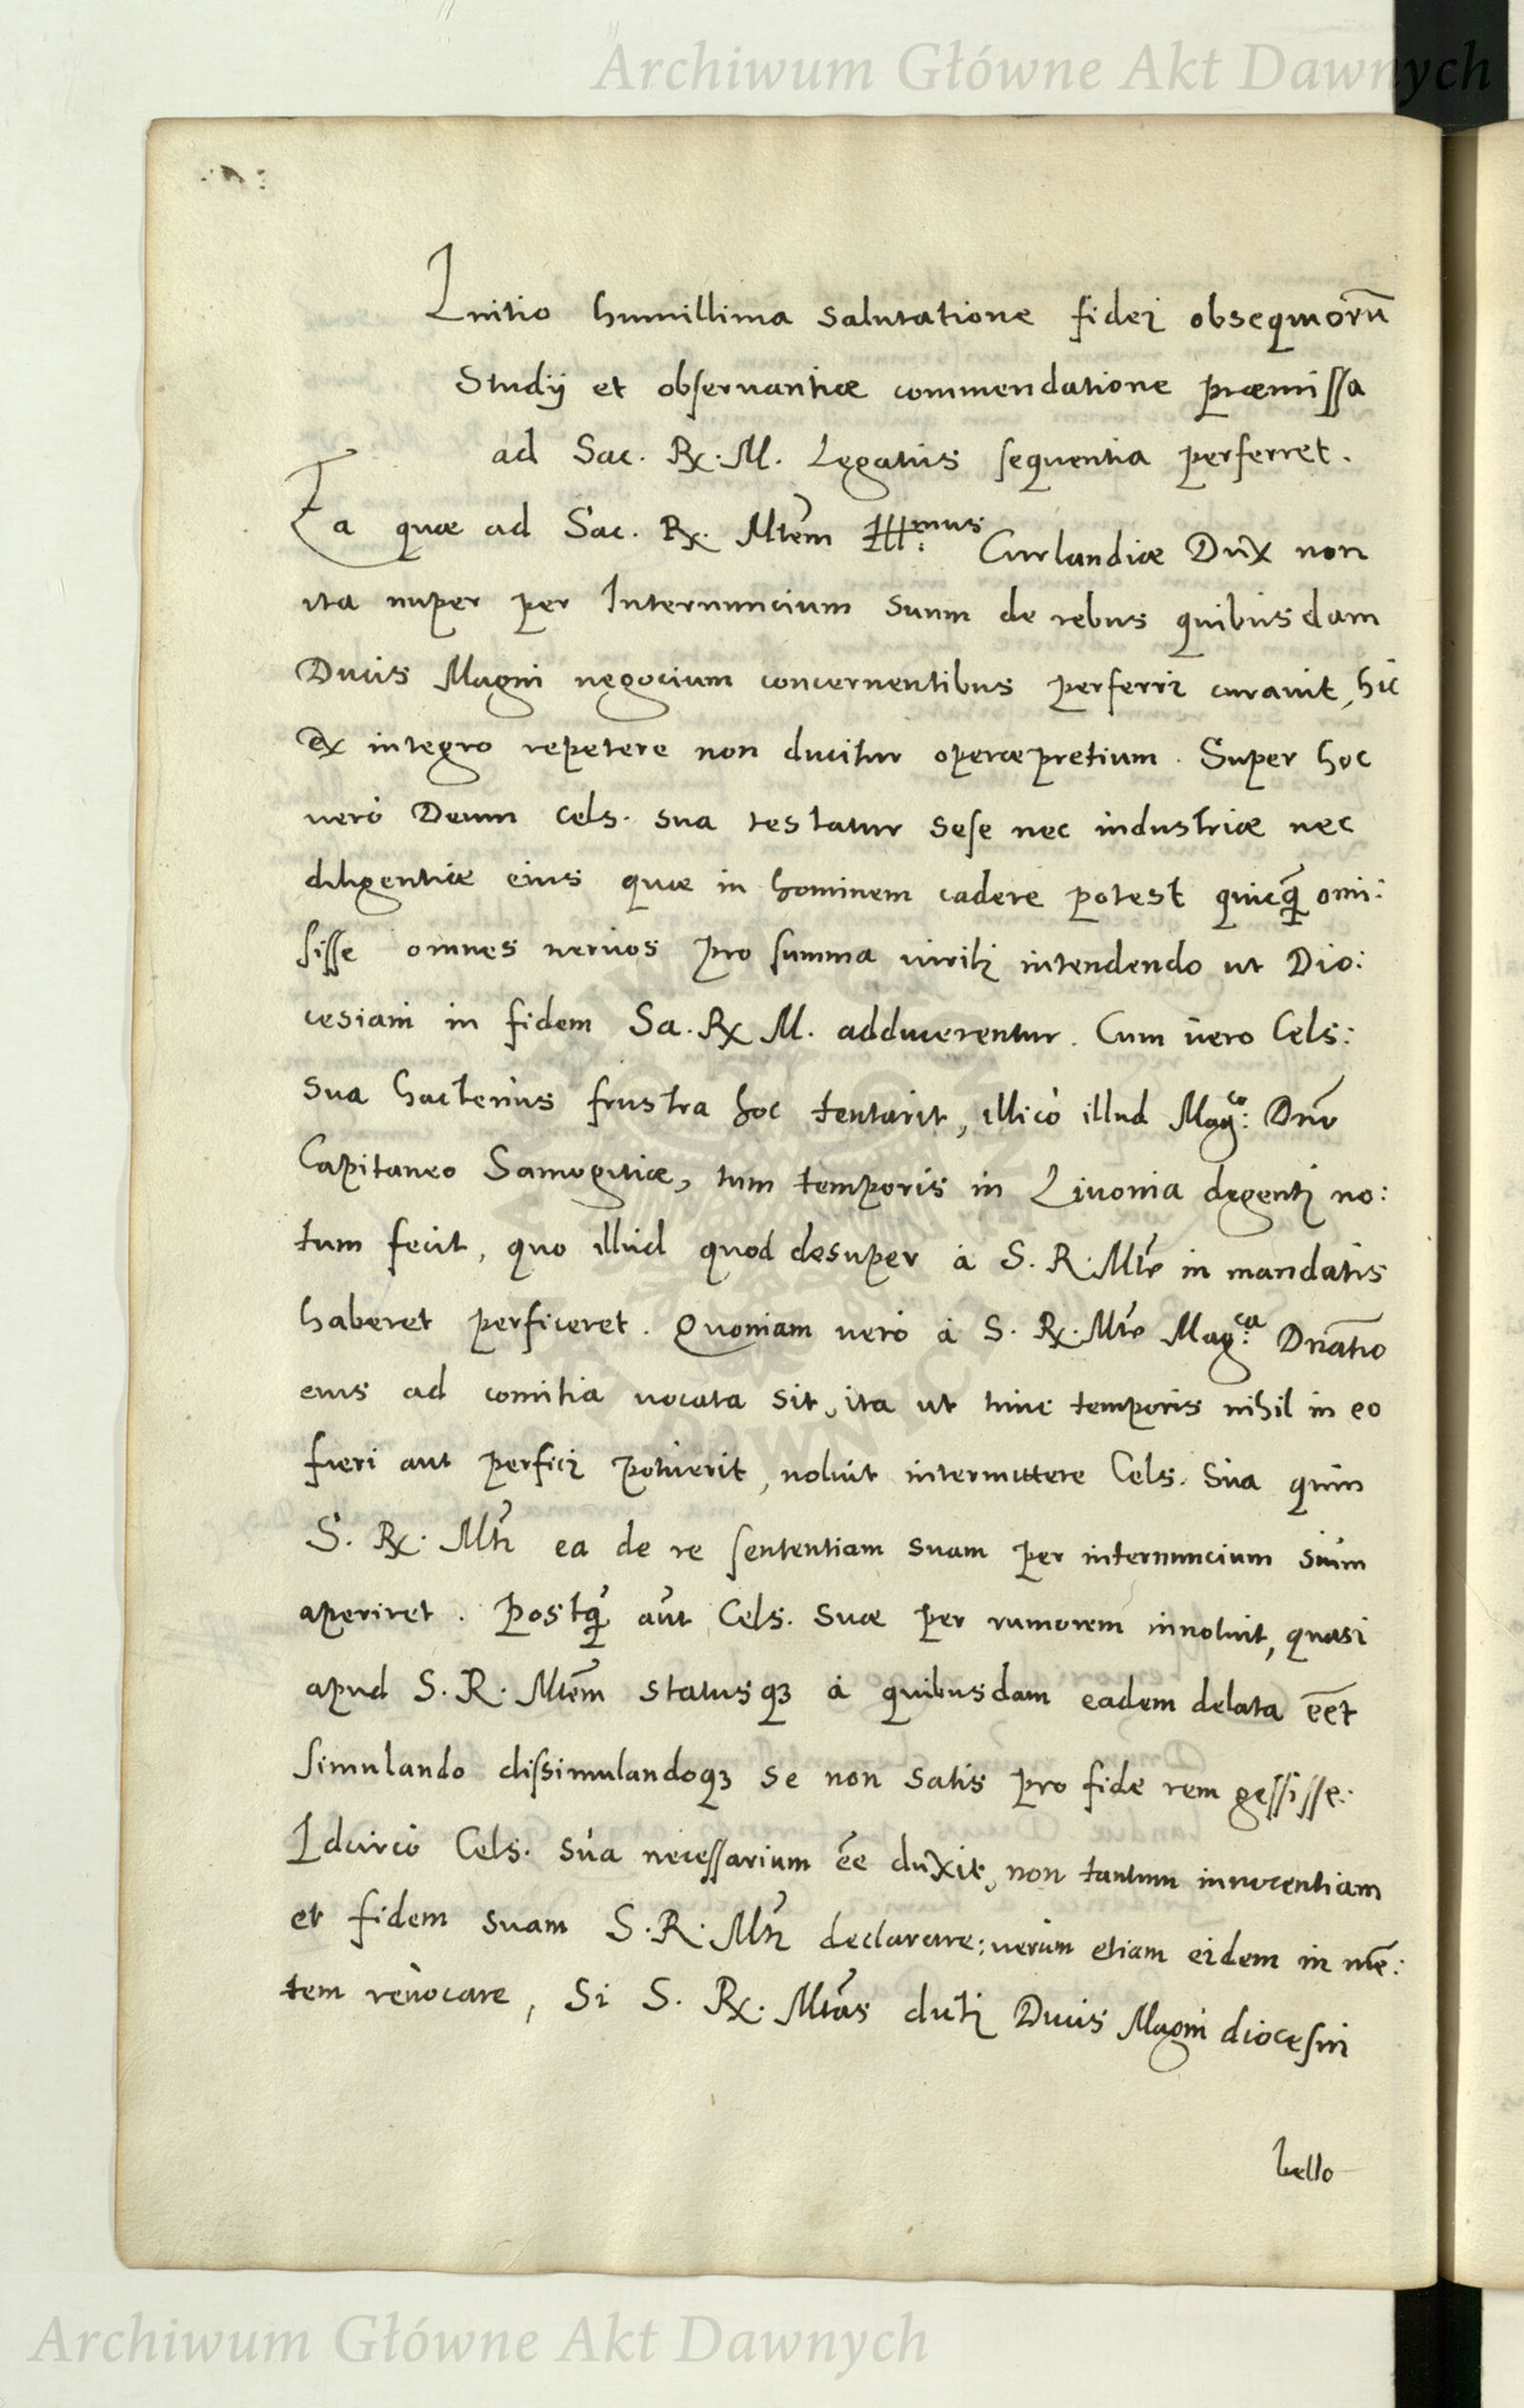 Archiwum Główne Akt Dawnych
Initio humillima salutatione fidei obsequiorũ
Studij et obseruantiæ commendatione præmissa
ad Sac. Rx. M. Legatus sequentia perferret.
Ea quæ ad Sac. Rx. Mtem Ill:mus Curlandiæ Dux non
ita nuper per Internuncium suum de rebus quibusdam
Ducis Magni negocium concernentibus perferri curauit, hic
ex integro repetere non ducitur operæpretium. Super hoc
uero Deum Cels. sua testatur sese nec industriæ nec
diligentiæ eius quæ in hominem cadere potest quicq̃ omi:
sisse omnes neruos pro summa uirili intendendo ut Dio:
cesiani in fidem Sa. Rx M. adducerentur. Cum uero Cels:
sua hactenus frustra hoc tentarit, illicò illud Mag:co Dño
Capitaneo Samogitiæ, tum temporis in Liuonia degenti no:
tum fecit, quo illud quod desuper à S. R. Mte in mandatis
haberet perficeret. Quoniam uerò à S. Rx. Mte Mag:ca Dñatio
eius ad comitia uocata sit, ita ut tunc temporis nihil in eo
fieri aut perfici potuerit, noluit intermittere Cels. Sua quin
S. Rx. Mti ea de re sententiam suam per internuncium suum
aperiret. Postq̃ aũt Cels. Suæ per rumorem innotuit, quasi
apud S. R. Mtem statusqȝ à quibusdam eadem delata eẽt
simulando dissimulandoqȝ se non satis pro fide rem gessisse:
Idcircò Cels. sua necessarium eẽ duxit, non tantum innocentiam
et fidem suam S. R. Mti declarare; uerùm etiam eidem in mẽ:
tem reuocare, Si S. Rx. Mtas dicti Ducis Magni diocesin
bello
Archiwum Główne Akt Dawnych